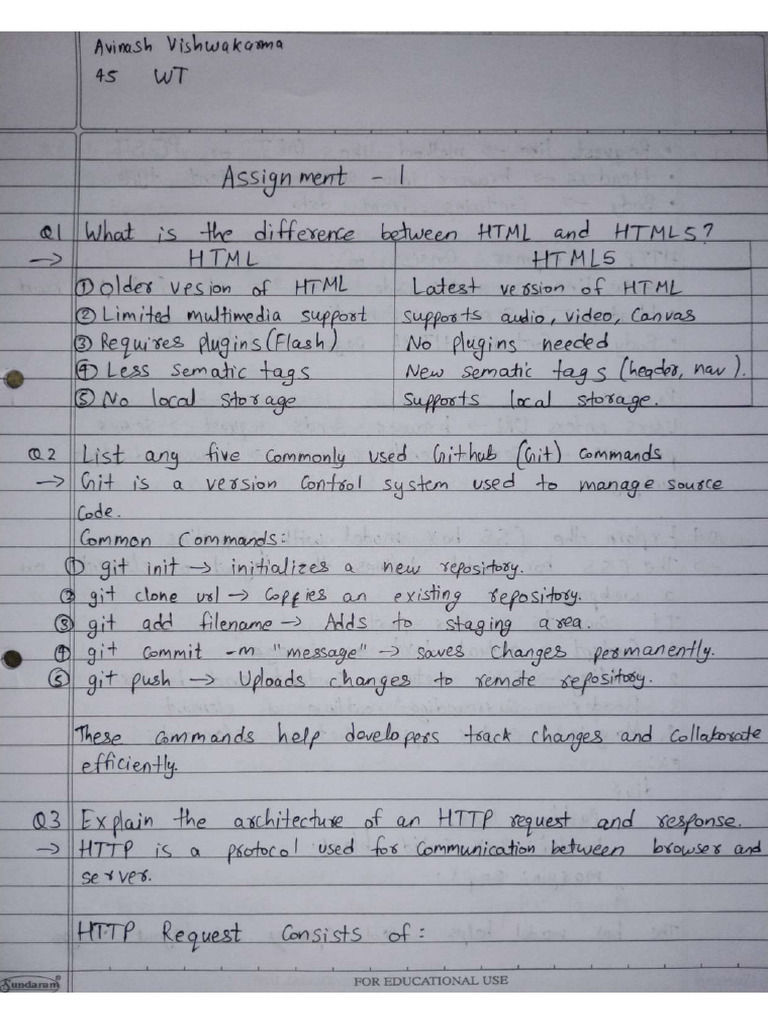 Avinash Vishwakarma
45 WT
Assignment - 1
Q1 What is the difference between HTML and HTML5?
→ HTML HTML5
① Older vesion of HTML Latest version of HTML
② Limited multimedia support supports audio, video, Canvas
③ Requires plugins (Flash) No plugins needed
④ Less sematic tags New sematic tags (header, nav).
⑤ No local storage supports local storage.
Q2 List any five commonly used Github (Git) commands
→ Git is a version control system used to manage source
code.
Common Commands:
① git init → initializes a new repository.
② git clone url → Coppies an existing repository.
③ git add filename → Adds to staging area.
④ git commit -m "message" → saves changes permanently.
⑤ git push → Uploads changes to remote repository.
These commands help developers track changes and collaborate
efficiently.
Q3 Explain the architecture of an HTTP request and response.
→ HTTP is a protocol used for communication between browser and
server.
HTTP Request Consists of:
Sundaram®
FOR EDUCATIONAL USE